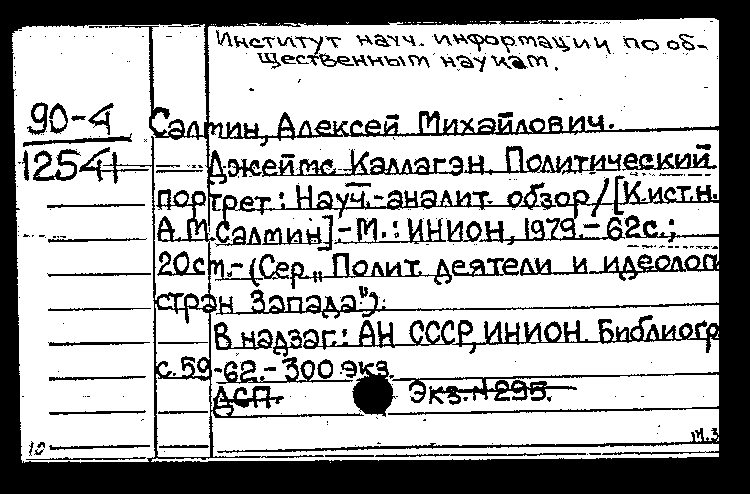 Институт науч. информации по об-
щественным наукам.
90-4
12541
Салмин, Алексей Михайлович.
Джеймс Каллагэн. Политический
портрет: Науч.-аналит. обзор/[К.ист.н.
А.М.Салмин].-М.: ИНИОН, 1979.-62с.;
20см.-(Сер. „Полит. деятели и идеолог
стран Запада").
В надзаг.: АН СССР, ИНИОН. Библиогр
с.59-62.-300 экз.
ДСП. Экз.N295.
М.3
10